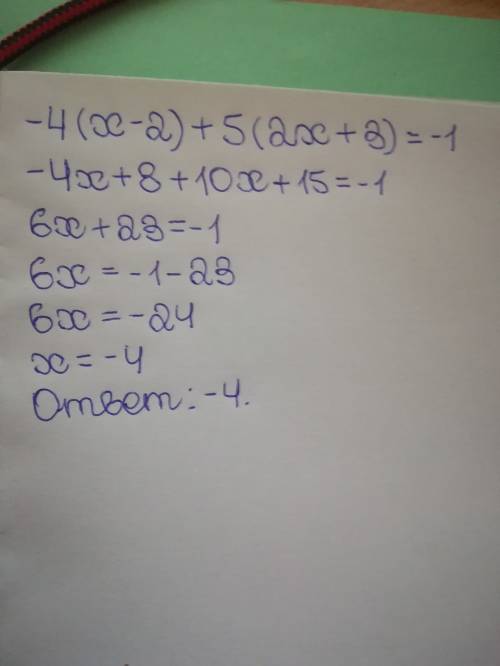 -4(x-2)+5(2x+3)=-1
-4x+8+10x+15=-1
6x+23=-1
6x=-1-23
6x=-24
x=-4
Ответ:-4.